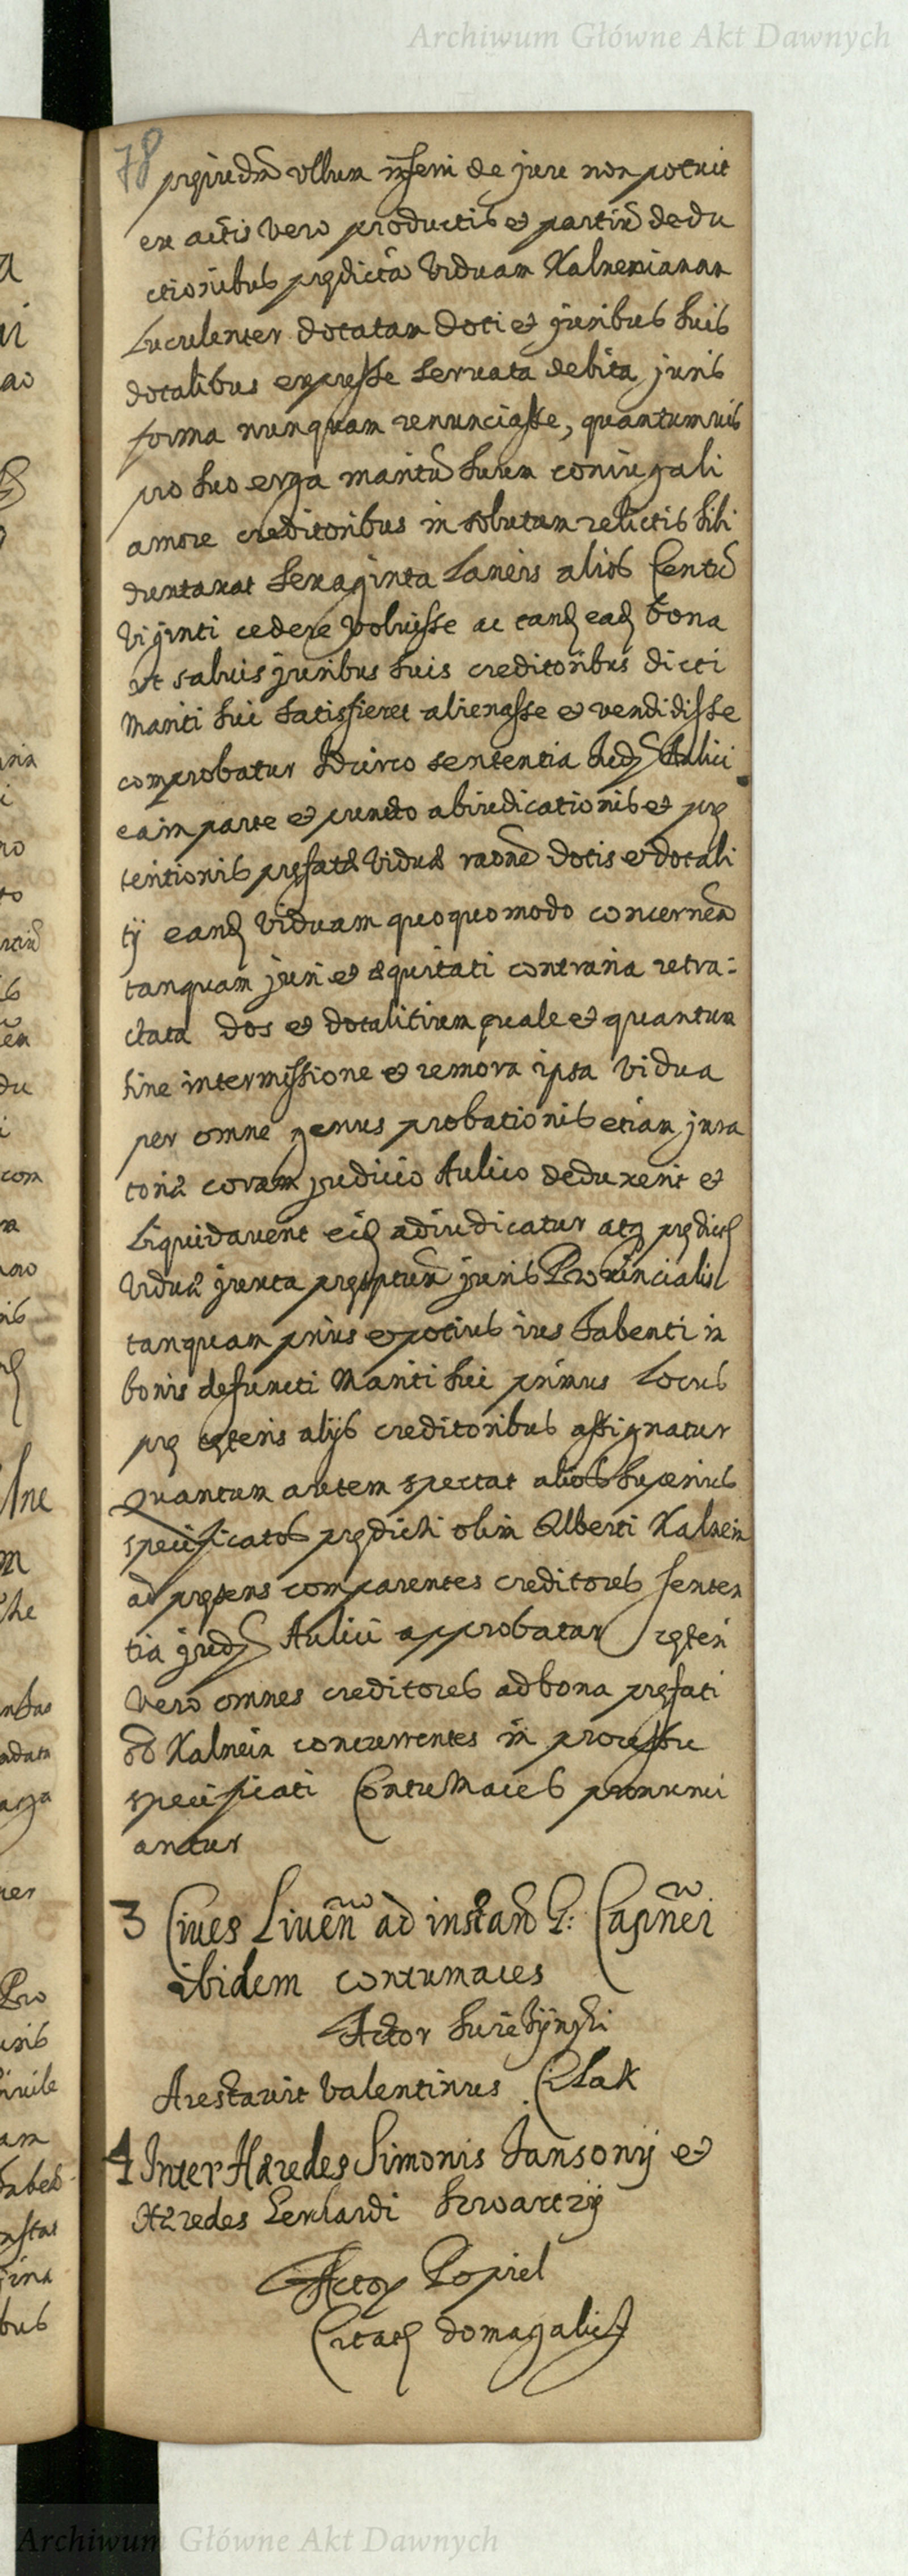 Archiwum Główne Akt Dawnych
78
pręiudm̄ vllum inferri de jure non potuit
ex actis vero productis et partiū dedu
ctionibus prędictā Viduam Kalneinianam
Luculenter dotatam doti et juribus suis
dotalibus expresse servata debita juris
forma nunquam renunciasse, quantumuis
pro suo erga maritū suum coniugali
amore creditoribus in solutum relictis sibi
duntaxat sexaginta Laneis alios Centū
Viginti cedere Voluisse ac tandꝫ eadꝫ bona
vt saluis juribus suis creditoribus dicti
Mariti sui satisfieret alienasse et vendidisse
comprobatur Idcirco sententia Iudꝫ Aulici
ea in parte et puncto abiudicationis et prę
tentionis pręfatæ Viduæ raōne dotis et dotali
tij eandꝫ Viduam quoquomodo concernēn
tanquam juri et æquitati contraria retra-
ctata Dos et dotalitium quale et quantum
sine intermissione et remora ipsa Vidua
per omne genus probationis etiam jura
toriæ coram judicio Aulico deduxerit et
Liquidauerit eidꝫ adiudicatur atqꝫ prędictꝫ
Viduæ juxta pręscriptum juris Prouincialis
tanquam prius et potius ius habenti in
bonis defuncti Mariti sui primus Locus
prę cęteris alijs creditoribus assignatur
Quantum autem spectat alios superius
specificatos prędicti olim Alberti Kalnein
ad pręsens comparentes creditores senten
tia judꝫ Aulici approbatur cęteri
Vero omnes creditores ad bona pręfati
od Kalnein concurrentes in processu
specificati Contumaces pronunci
antur
3 Ciues Liuēn ad instan G: Capnēr
ibidem contumaces
Actor
Arestauit Valentinus Cilak
4 Inter Hæredes Simonis Jansonij et
Hæredes Szwartzij
Actor Popiel
Citatꝫ domagalicz
Archiwum Główne Akt Dawnych